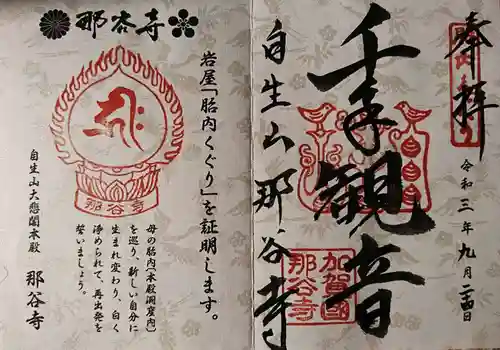 奉拝
令和三年九月二四日
千手観音
加賀國
那谷寺
自生山那谷寺
那谷寺
岩屋「胎内くぐり」を証明します。
母の胎内(本殿洞窟内)
を巡り、新しい自分に
生まれ変わり、白く
浄められて、再出発を
誓いましょう。
那谷寺
自生山大悲閣本殿
那谷寺